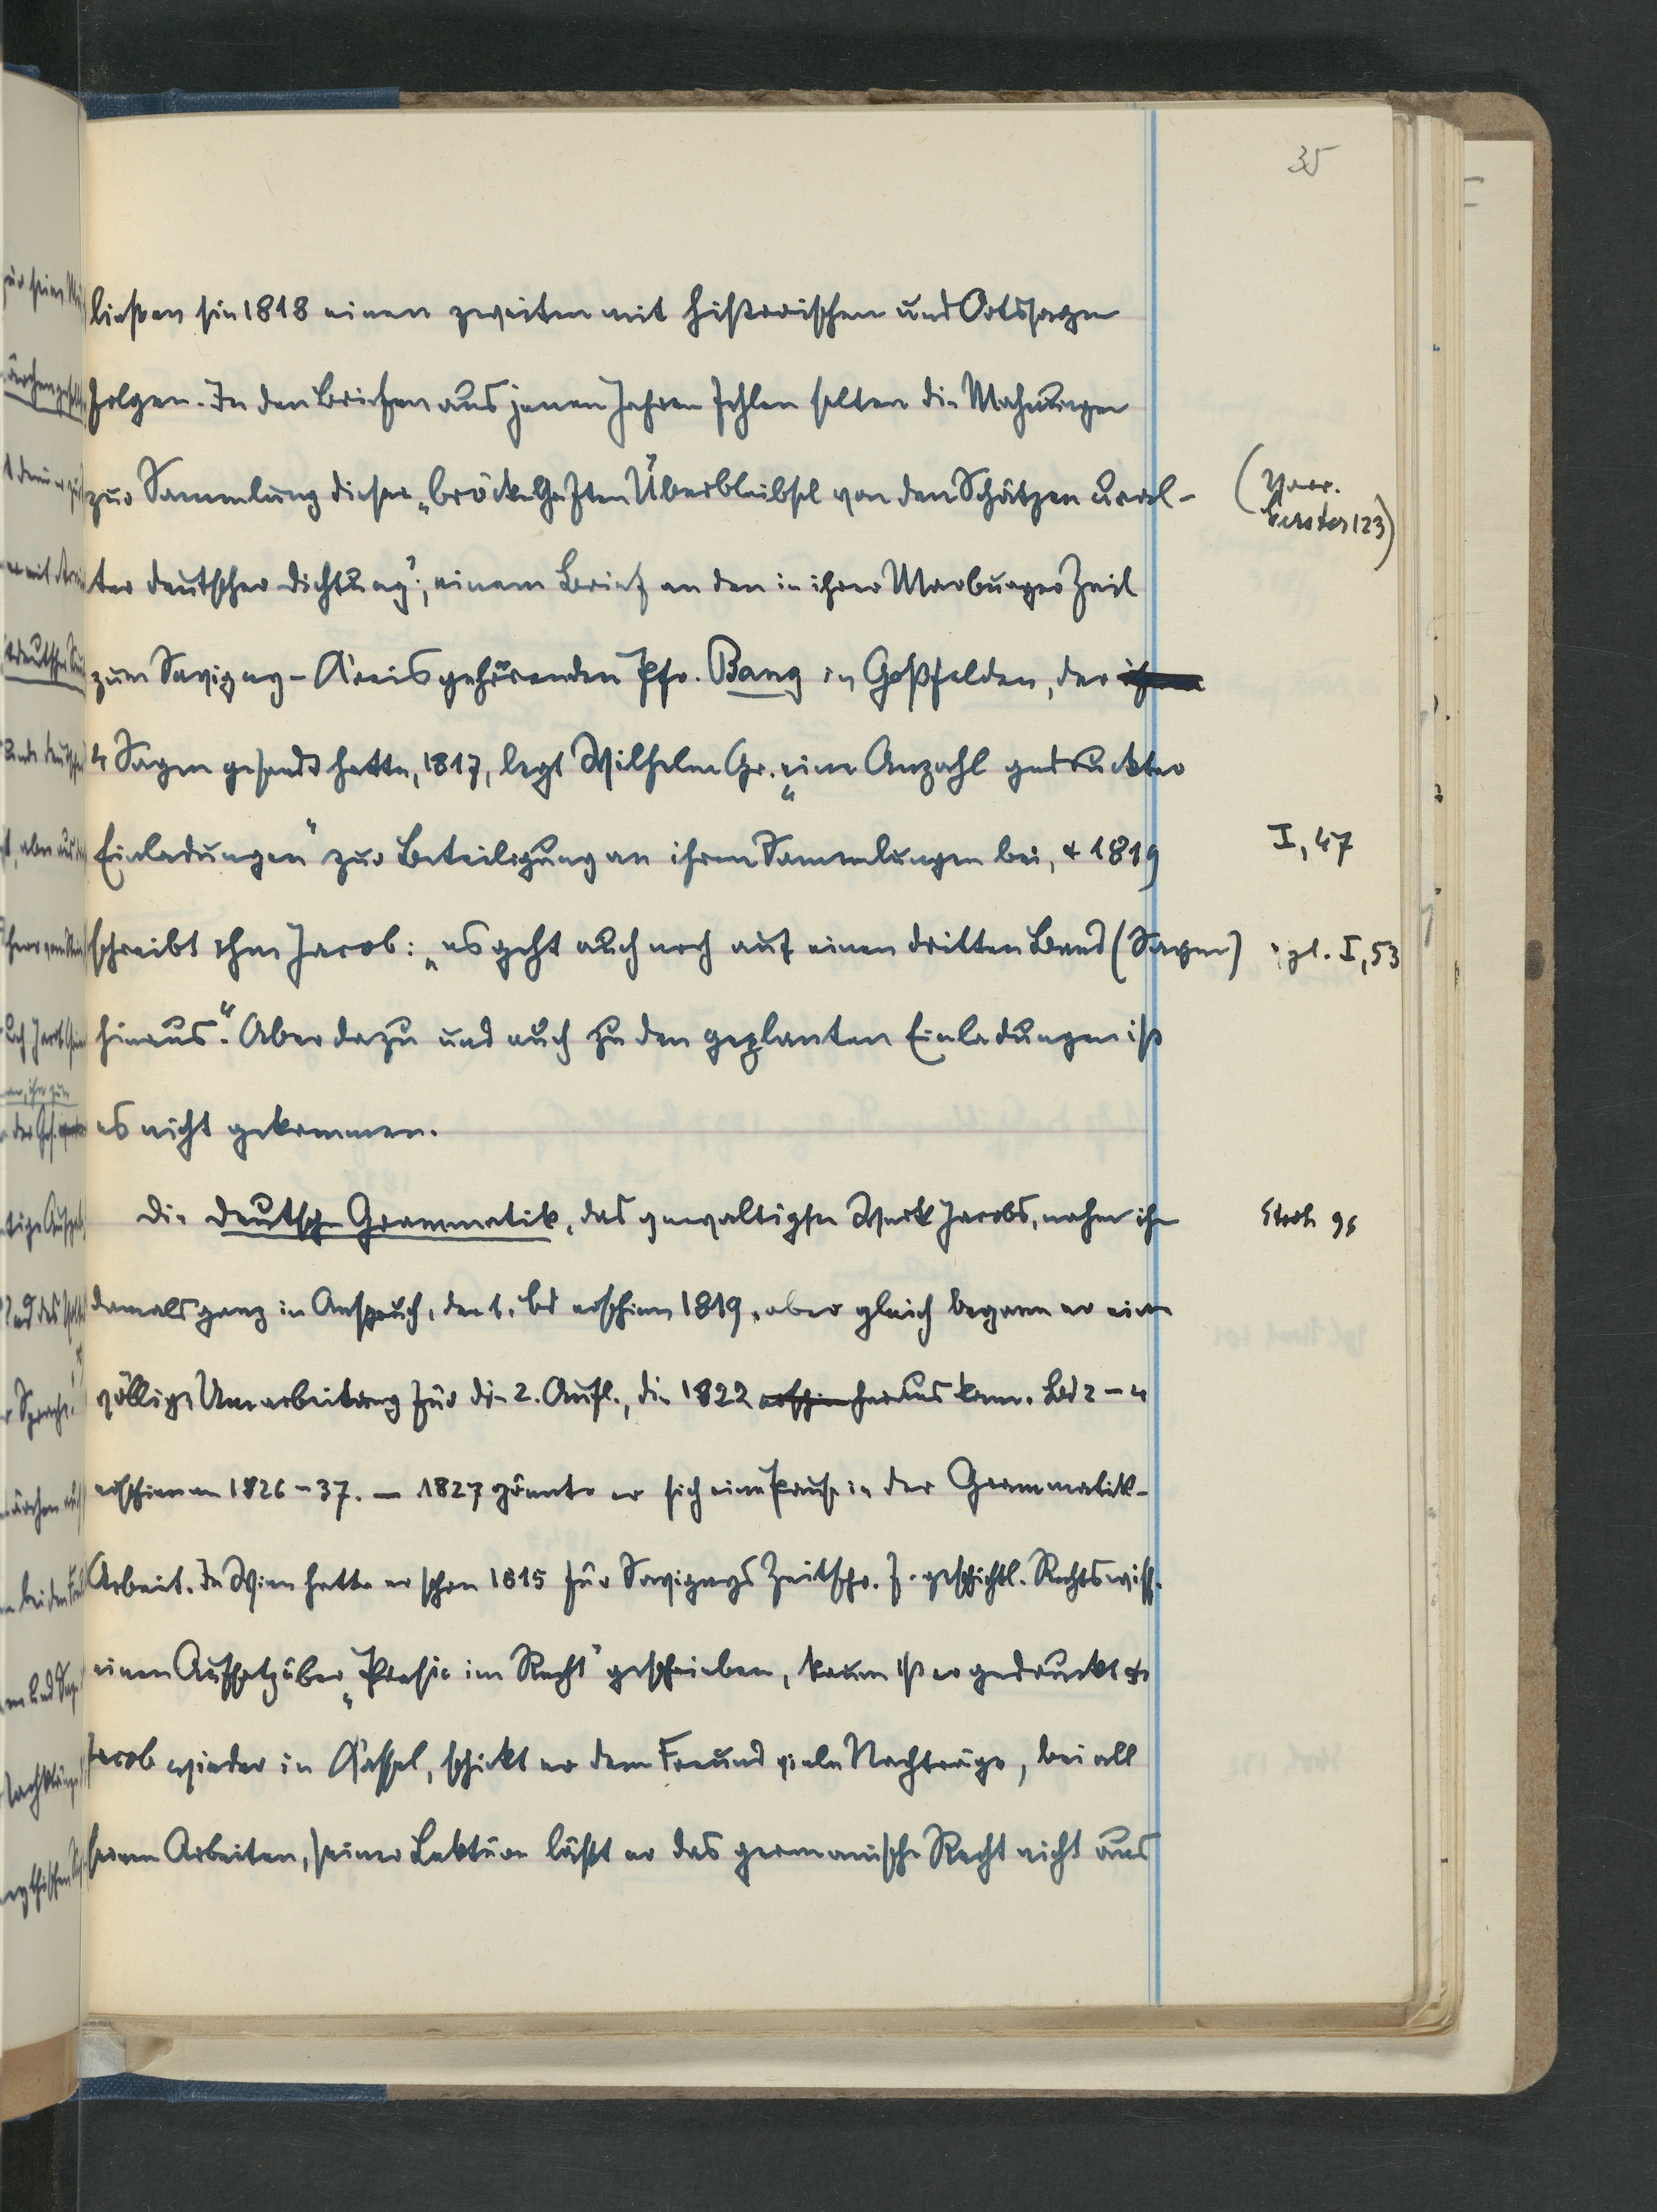 35
ließen sie 1818 einen zweiten mit historischen und Ortssagen
folgen. In den Briefen aus jenen Jahren fehlen selten die Mahnungen
zur Sammlung dieser „bröckelhaften Überbleibsel von den Schätzen ural-
ter deutscher Dichtung"; einem Brief an den in ihrer Marburger Zeit
zum Savigny-Kreis gehörenden Pfr. Bang in Goßfelden, der
4 Sagen gesandt hatte, 1817, legt Wilhelm Gr. „eine Anzahl gedruckter
Einladungen" zur Beteiligung an ihren Sammlungen bei, & 1819
I, 47
schreibt ihm Jacob: „es geht auch noch auf einen dritten Band (Sagen)
vgl. I, 53
hinaus". Aber dazu und auch zu den geplanten Einladungen ist
es nicht gekommen.
Die deutsche Grammatik, das gewaltigste Werk Jacobs, nahm ihn
damals ganz in Anspruch, der 1. Bd erschien 1819, aber gleich begann er eine
völlige Umarbeitung für die 2. Aufl., die 1822 erschien herauskam. Bd 2-4
erschienen 1826-37. — 1827 gönnte er sich eine Pause in der Grammatik-
Arbeit. In Wien hatte er schon 1815 für Savignys Zeitschr. f. geschichtl. Rechtswiss.
einen Aufsatz über „Poesie im Recht" geschrieben, kaum ist er gedruckt &
Jacob wieder in Kassel, schickt er dem Freund viele Nachträge, bei all
seinen Arbeiten, seiner Lektüre läßt er das germanische Recht nicht aus